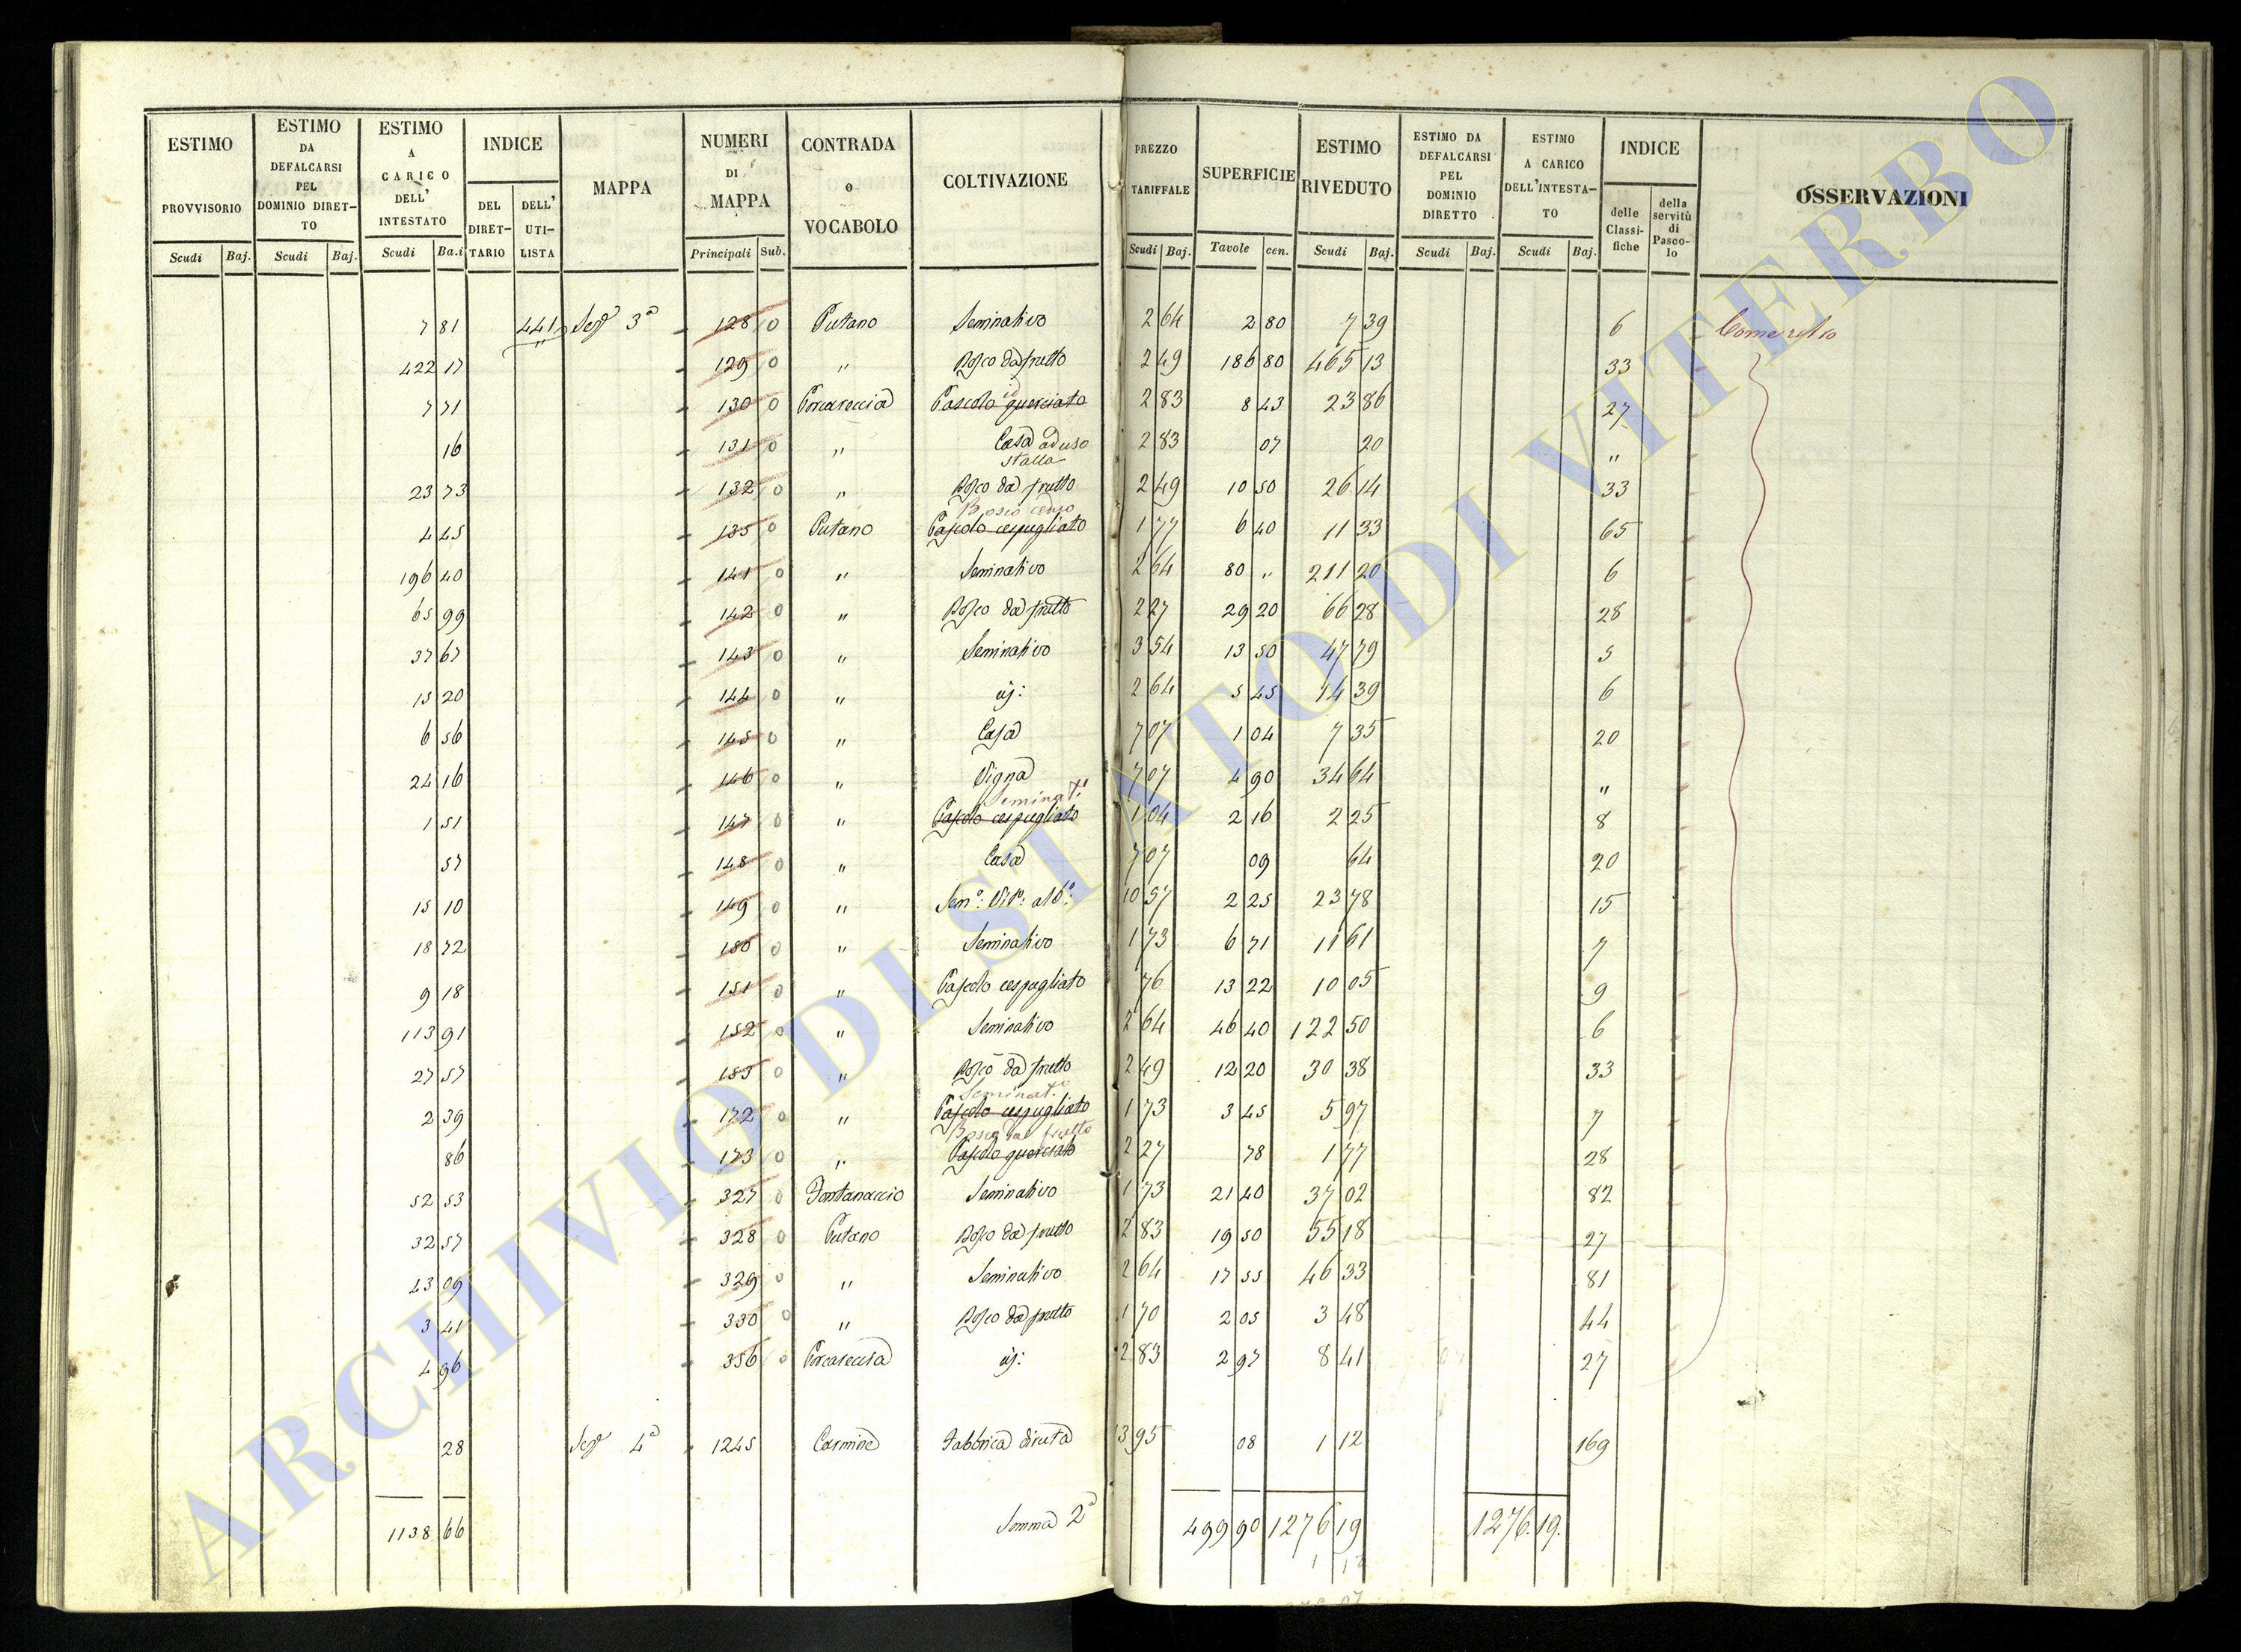 ESTIMO PROVVISORIO Scudi Baj.
ESTIMO DA DEFALCARSI PEL DOMINIO DIRET-TO Scudi Baj.
ESTIMO A CARICO DELL' INTESTATO Scudi Ba.i
INDICE DEL DIRET-TARIO DELL' UTI-LISTA
MAPPA
NUMERI DI MAPPA Principali Sub.
CONTRADA o VOCABOLO
COLTIVAZIONE
PREZZO TARIFFALE Scudi Baj.
SUPERFICIE Tavole cen.
ESTIMO RIVEDUTO Scudi Baj.
ESTIMO DA DEFALCARSI PEL DOMINIO DIRETTO Scudi Baj.
ESTIMO A CARICO DELL'INTESTA-TO Scudi Baj.
INDICE delle Classi-fiche della servitù di Pasco-lo
OSSERVAZIONI
7 81 441 Sez 3a 128 0 Putano Seminativo 2 64 2 80 7 39 6 Come retro
422 17 129 0 " Bosco da frutto 2 49 186 80 465 13 33
7 71 130 0 Porcareccia Pascolo querciato id 2 83 8 43 23 86 27
16 131 0 " Casa ad uso stalla 2 83 07 20 "
23 73 132 0 " Bosco da frutto 2 49 10 50 26 14 33
Bosco ceduo
4 45 135 0 Putano Pascolo cespugliato 1 77 6 40 11 33 65
196 40 141 0 " Seminativo 2 64 80 " 211 20 6
65 99 142 0 " Bosco da frutto 2 27 29 20 66 28 28
37 67 143 0 " Seminativo 3 54 13 50 47 79 5
15 20 144 0 " id: 2 64 5 45 14 39 6
6 56 145 0 " Casa 7 07 1 04 7 35 20
24 16 146 0 " Vigna 7 07 4 90 34 64 "
Seminato
1 51 147 0 " Pascolo cespugliato 1 04 2 16 2 25 8
57 148 0 " Casa 7 07 09 64 20
15 10 149 0 " Semo: Vito: albo: 10 57 2 25 23 78 15
18 72 150 0 " Seminativo 1 73 6 71 11 61 7
9 18 151 0 " Pascolo cespugliato 76 13 22 10 05 9
113 91 152 0 " Seminativo 2 64 46 40 122 50 6
27 57 153 0 " Bosco da frutto 2 49 12 20 30 38 33
Seminato
2 39 172 0 " Pascolo cespugliato 1 73 3 45 5 97 7
Bosco da frutto
86 173 0 " Pascolo querciato 2 27 78 1 77 28
52 53 327 0 Fontanaccio Seminativo 1 73 21 40 37 02 82
32 57 328 0 Putano Bosco da frutto 2 83 19 50 55 18 27
43 09 329 0 " Seminativo 2 64 17 55 46 33 81
3 41 330 0 " Bosco da frutto 1 70 2 05 3 48 44
4 96 356 0 Porcareccia id: 2 83 2 97 8 41 27
28 Sez 4a 1245 Carmine Fabbrica diruta 13 95 08 1 12 169
1138 66 Somma 2a 499 90 1276 19 1276.19.
ARCHIVIO DI STATO DI VITERBO